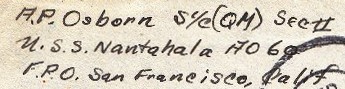 A.P. Osborn S1/c(QM) Sec II
U.S.S. Nantahala AO 60
F.P.O. San Francisco, Calif